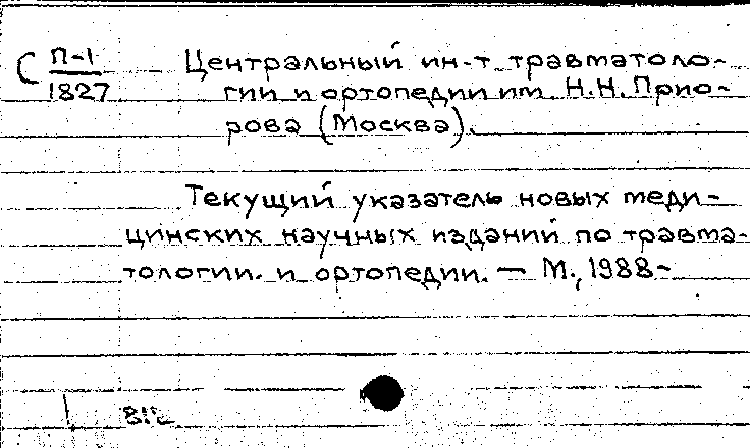 С П-1 Центральный ин-т травматоло-
1827 гии и ортопедии им. Н.Н. Прио-
рова (Москва).
Текущий указатель новых меди-
цинских научных изданий по травма-
тологии и ортопедии. — М., 1988-